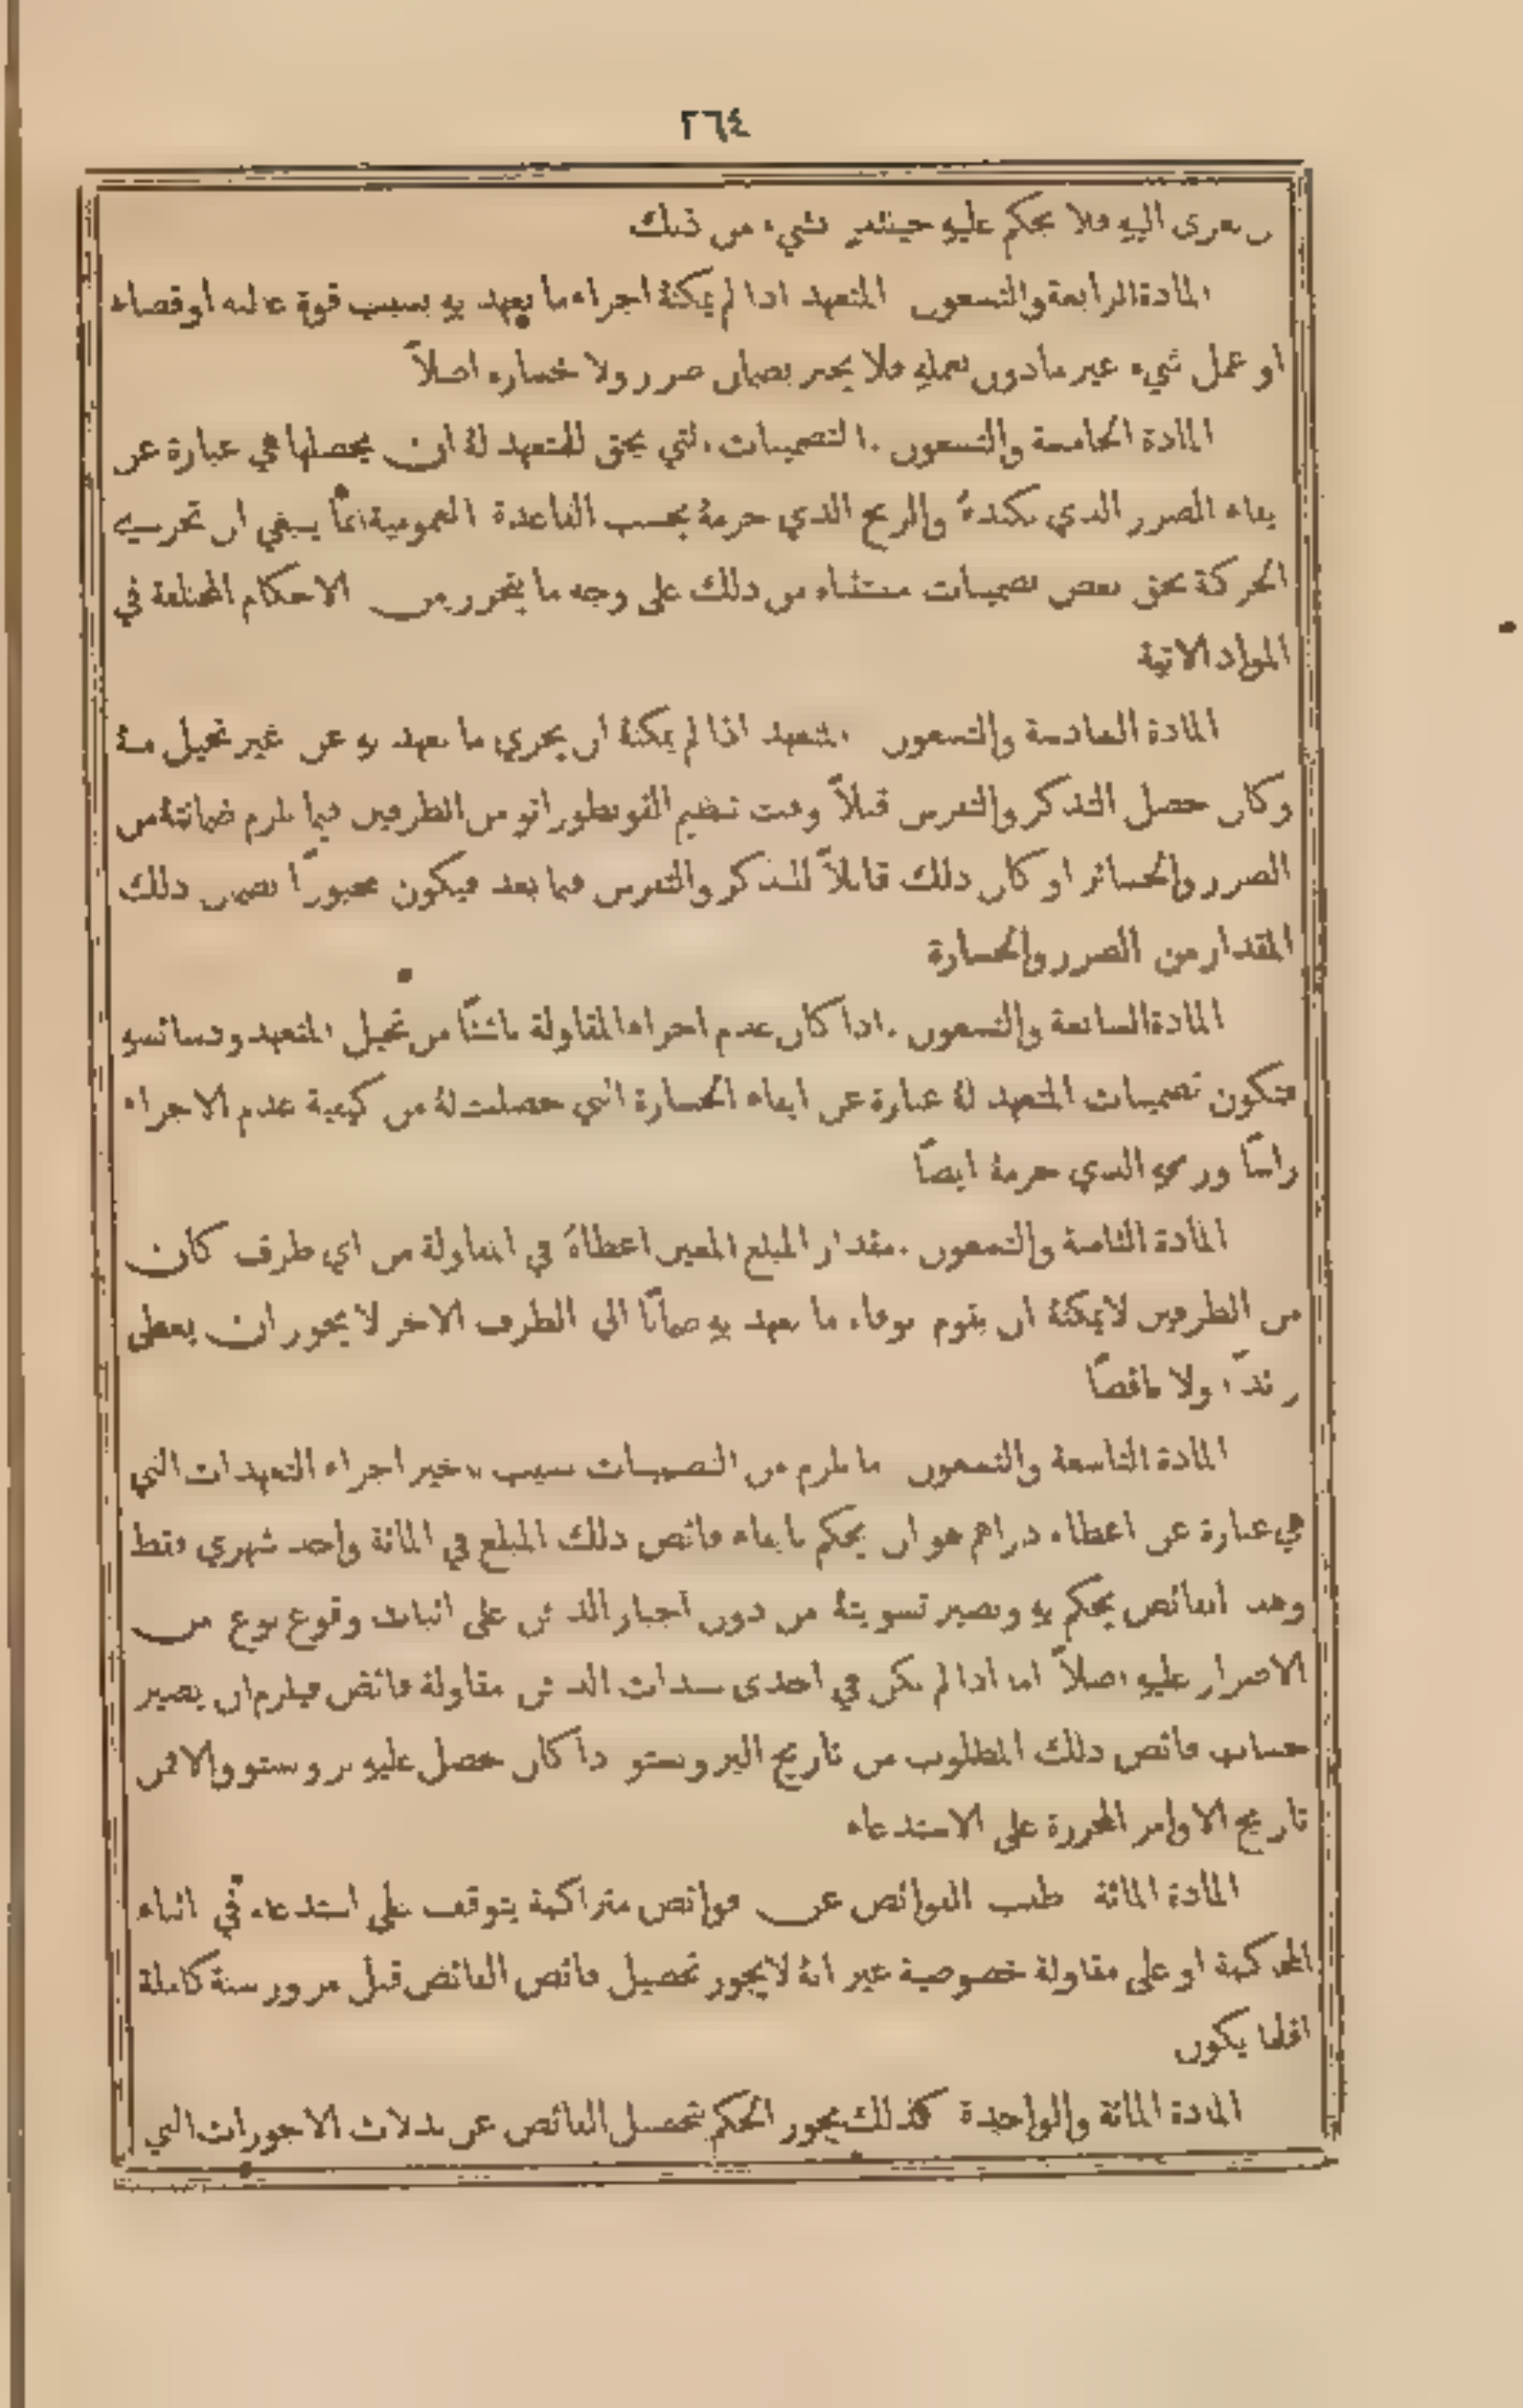 ٢٦٤
يعزى اليه فلا يحكم عليه حينئذٍ بشيء من ذلك
المادة الرابعة والتسعون المتعهد اذا لم يمكنهُ اجراء ما تعهد به بسبب قوة غالبه او قضاء
او عمل شيء غير ماذون بعمله فلا يجبر بضمان ضرر ولا خساره اصلاً
المادة الخامسة والتسعون . التضمينات التي يحق للمتعهد لهُ ان يحصلها هي عبارة عن
ايفاء الضرر الذي تكبدهُ والربح الذي حرمهُ بحسب القاعدة العمومية انما ينبغي ان تجرى
الحركة بحق بعض تضمينات مستثناه من ذلك على وجه ما يتحرر من الاحكام المختلفة في
المواد الاتية
المادة السادسة والتسعون المتعهد اذا لم يمكنهُ ان يجري ما تعهد به عن غير تحيل منهُ
وكان حصل التذكر والتفرس قبلاً وقت تنظيم القونطوراتو من الطرفين فيما يلزم ضمانتهُ من
الضرر والخسائر او كان ذلك قابلاً للتذكر والتفرس فيما بعد فيكون مجبوراً بضمان ذلك
المقدار من الضرر والخسارة
المادة السابعة والتسعون . اذا كان عدم اجراء المقاولة ناشئاً من تحيل المتعهد ودسائسه
فتكون تضمينات المتعهد لهُ عبارة عن ايفاء الخسارة التي حصلت لهُ من كيفية عدم الاجراء
راساً وربحه الذي حرمهُ ايضاً
المادة الثامنة والتسعون . مقدار المبلغ المعين اعطاهُ في المقاولة من اي طرف كان
من الطرفين لا يمكنهُ ان يقوم بوفاء ما تعهد به ضماناً الى الطرف الاخر لا يجوز ان يعطى
زائداً ولا ناقصاً
المادة التاسعة والتسعون ما يلزم من التضمينات بسبب تاخير اجراء التعهدات التي
هي عبارة عن اعطاء دراهم هو ان يحكم بايفاء فائض ذلك المبلغ في المائة واحد شهري فقط
وهذا الفائض يحكم به وتصير تسويتهُ من دون اجبار الدائن على اثبات وقوع نوع من
الاضرار عليه اصلاً اما اذا لم يكن في احدى سندات الدائن مقاولة فائض فيلزم ان يصير
حساب فائض ذلك المطلوب من تاريخ البروتستو اذا كان حصل عليه بروتستو والا فمن
تاريخ الاوامر المحررة على الاستدعاء
المادة المائة طلب الفوائض عن فوائض متراكمة يتوقف على استدعاء في اثناء
المحاكمة او على مقاولة خصوصية غير انهُ لا يجوز تحصيل فائض الفائض قبل مرور سنة كاملة
اقلما يكون
المادة المائة والواحدة كذلك يجوز الحكم بتحصيل الفائض عن بدلات الاجورات التي